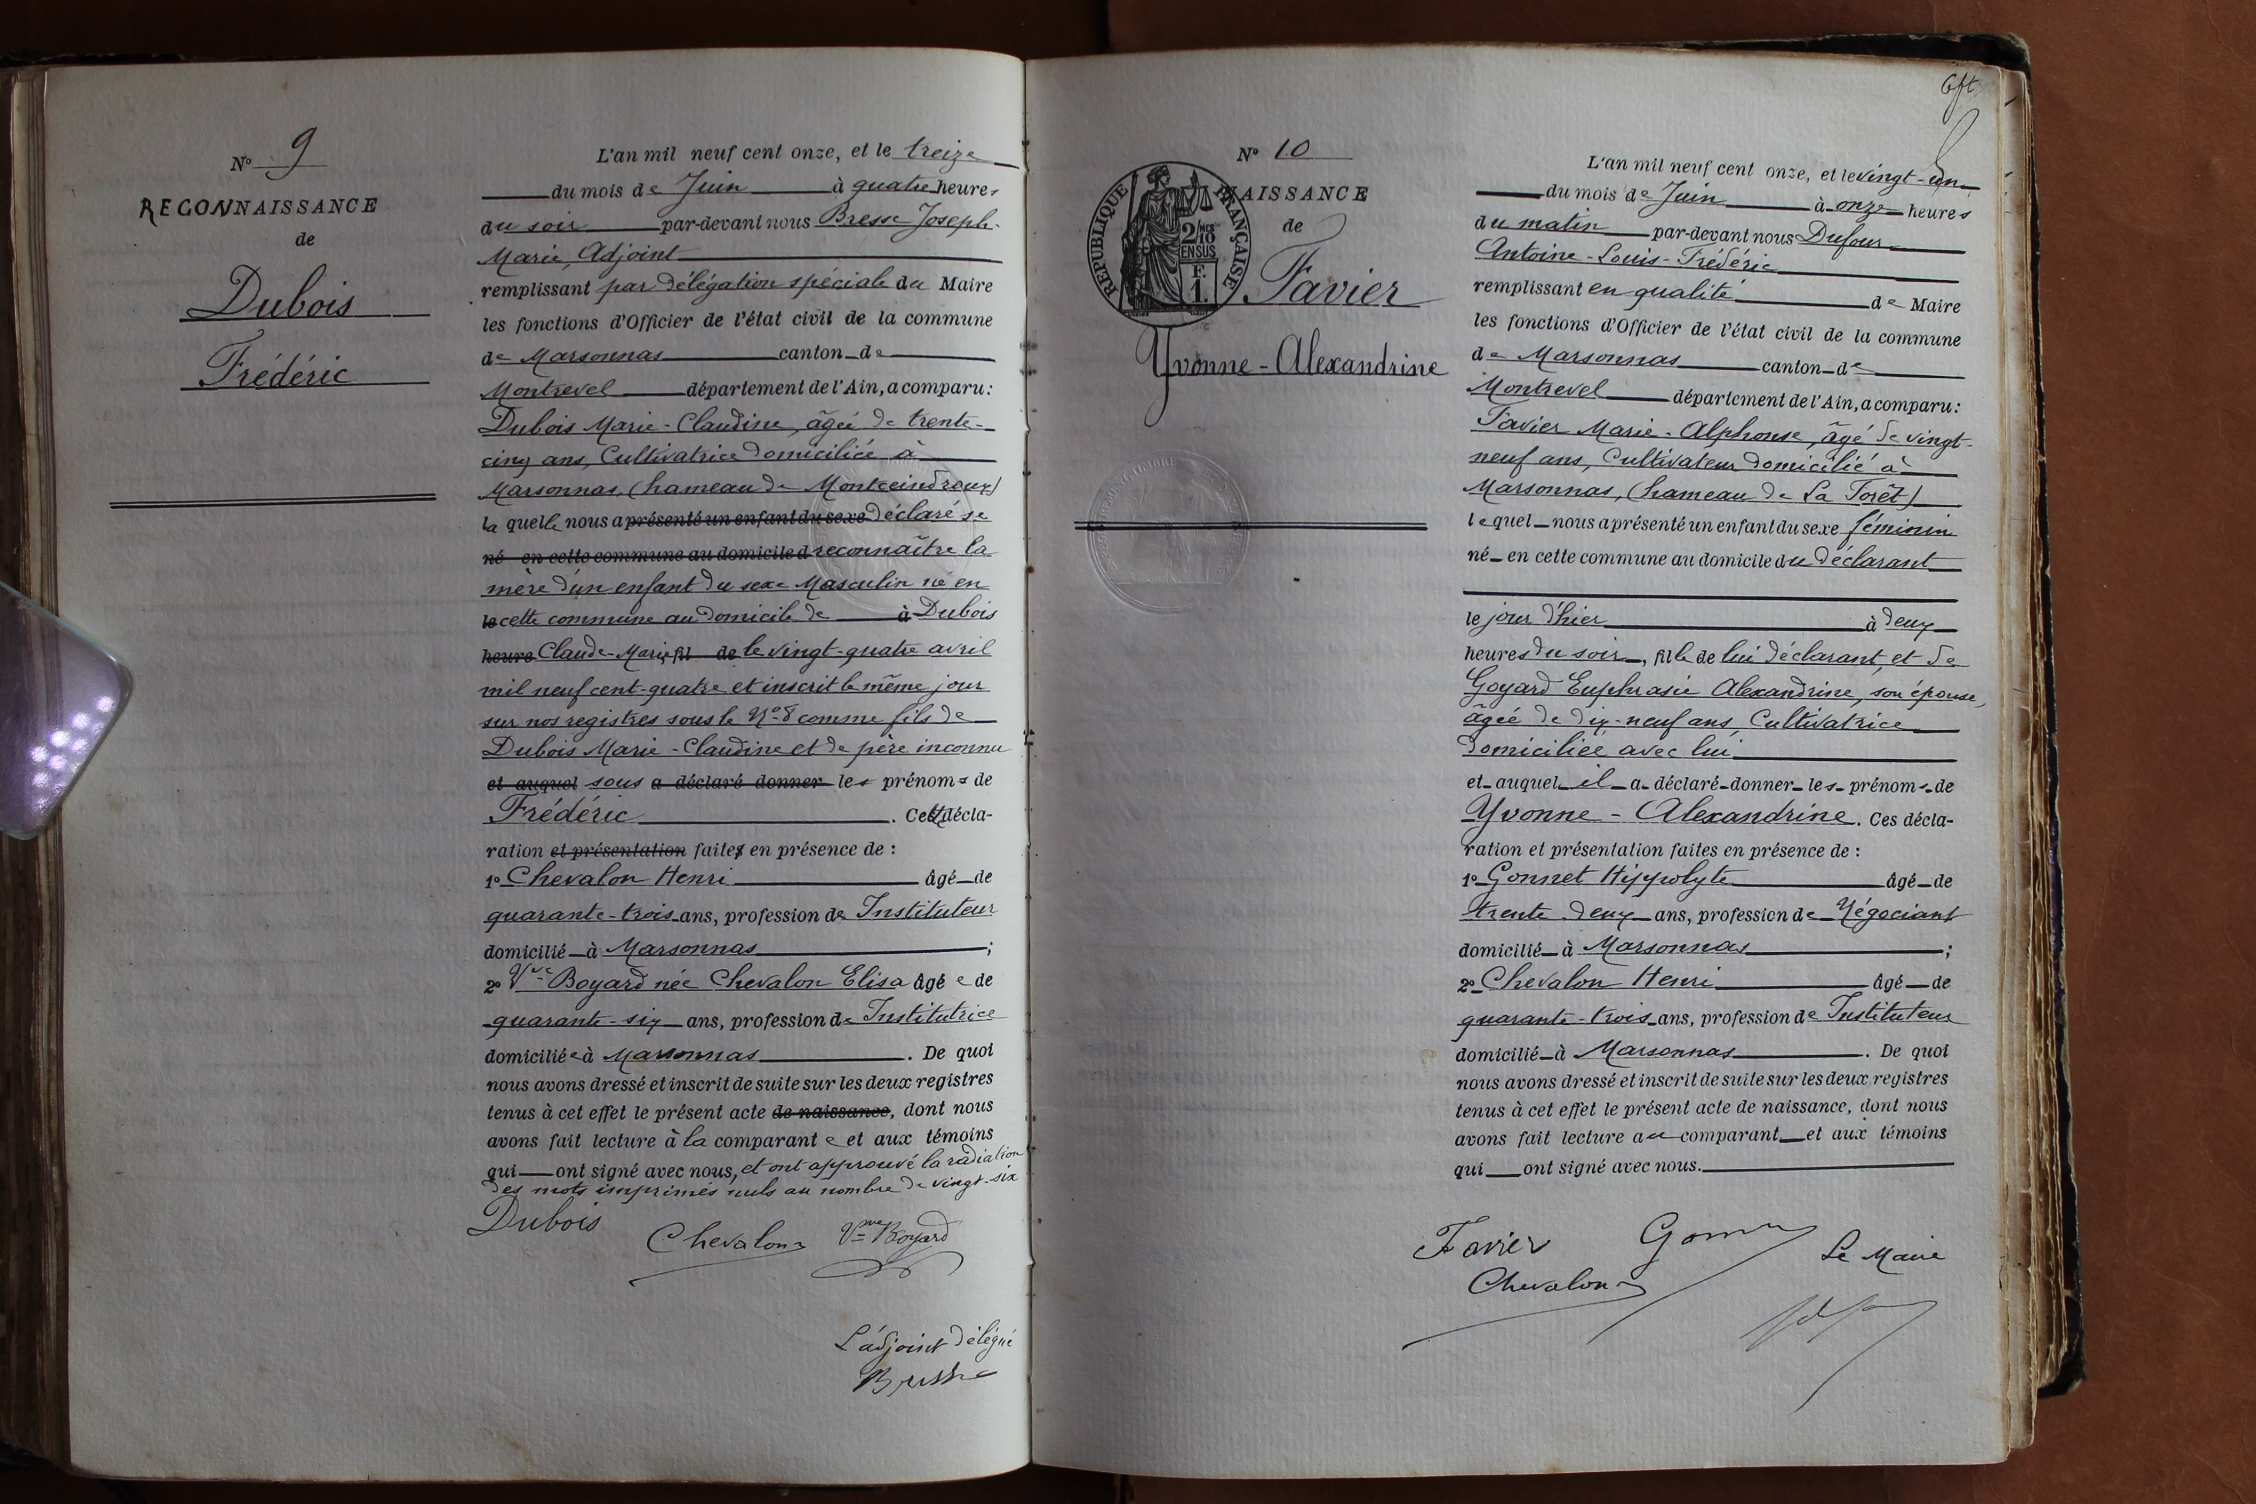 N° 9
RECONNAISSANCE
de
Dubois
Frédéric
L'an mil neuf cent onze, et le treize
du mois de Juin à quatre heures
du soir par-devant nous Bresse Joseph-
Marie, Adjoint
remplissant par délégation spéciale du Maire
les fonctions d'Officier de l'état civil de la commune
de Marsonnas canton de
Montrevel département de l'Ain, a comparu :
Dubois Marie-Claudine, âgée de trente-
cinq ans, Cultivatrice domiciliée à
Marsonnas, (hameau de Montceindroux)
la quelle nous a présenté un enfant du sexe déclaré se
né en cette commune au domicile d reconnaître la
mère d'un enfant du sexe Masculin né en
le cette commune au domicile de à Dubois
heure Claude-Marie, fil de le vingt-quatre avril
mil neuf cent-quatre et inscrit le même jour
sur nos registres sous le N° 8 comme fils de
Dubois Marie-Claudine et de père inconnu
et auquel sous a déclaré donner les prénoms de
Frédéric. Cette décla-
ration et présentation faites en présence de :
1° Chevalon Henri âgé de
quarante-trois ans, profession de Instituteur
domicilié à Marsonnas ;
2° Vve Boyard née Chevalon Elisa âgée de
quarante-six ans, profession de Institutrice
domiciliée à Marsonnas. De quoi
nous avons dressé et inscrit de suite sur les deux registres
tenus à cet effet le présent acte de naissance, dont nous
avons fait lecture à la comparante et aux témoins
qui ont signé avec nous, et ont approuvé la radiation
des mots imprimés nuls au nombre de vingt-six
Dubois
Chevalon Vve Boyard
L'adjoint délégué
Bresse
N° 10
NAISSANCE
de
RÉPUBLIQUE FRANÇAISE
2/10 EN SUS
F.
1.
Favier
Yvonne-Alexandrine
L'an mil neuf cent onze, et le vingt-un
du mois de Juin à onze heures
du matin par-devant nous Dufour
Antoine-Louis-Frédéric
remplissant en qualité de Maire
les fonctions d'Officier de l'état civil de la commune
de Marsonnas canton de
Montrevel département de l'Ain, a comparu :
Favier Marie-Alphonse, âgé de vingt-
neuf ans, Cultivateur domicilié à
Marsonnas, (hameau de La Forêt)
lequel nous a présenté un enfant du sexe féminin
né en cette commune au domicile du déclarant
le jour d'hier à deux
heures du soir, fille de lui déclarant, et de
Goyard Euphrasie Alexandrine, son épouse,
âgée de dix-neuf ans, Cultivatrice
domiciliée avec lui
et auquel il a déclaré donner les prénoms de
Yvonne-Alexandrine. Ces décla-
ration et présentation faites en présence de :
1° Gonnet Hippolyte âgé de
trente deux ans, profession de Négociant
domicilié à Marsonnas ;
2° Chevalon Henri âgé de
quarante-trois ans, profession de Instituteur
domicilié à Marsonnas. De quoi
nous avons dressé et inscrit de suite sur les deux registres
tenus à cet effet le présent acte de naissance, dont nous
avons fait lecture au comparant et aux témoins
qui ont signé avec nous.
Favier
Le Maire
Chevalon